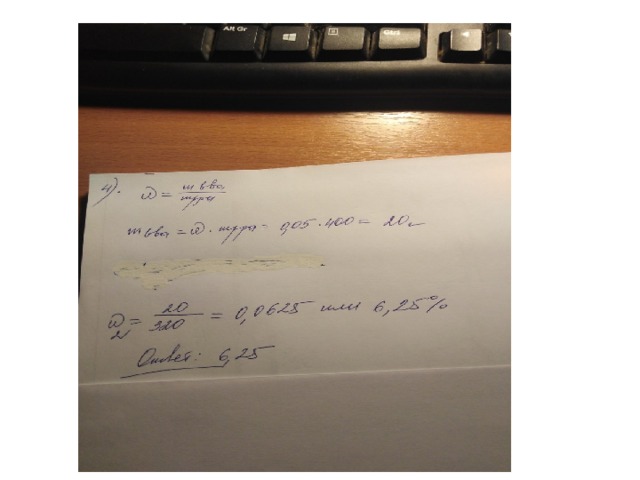 Alt Gr
Ctrl
4).
ω = m в-ва / m р-ра
m в-ва = ω · m р-ра = 0,05 · 400 = 20 г
ω₂ = 20 / 320 = 0,0625 или 6,25%
Ответ: 6,25